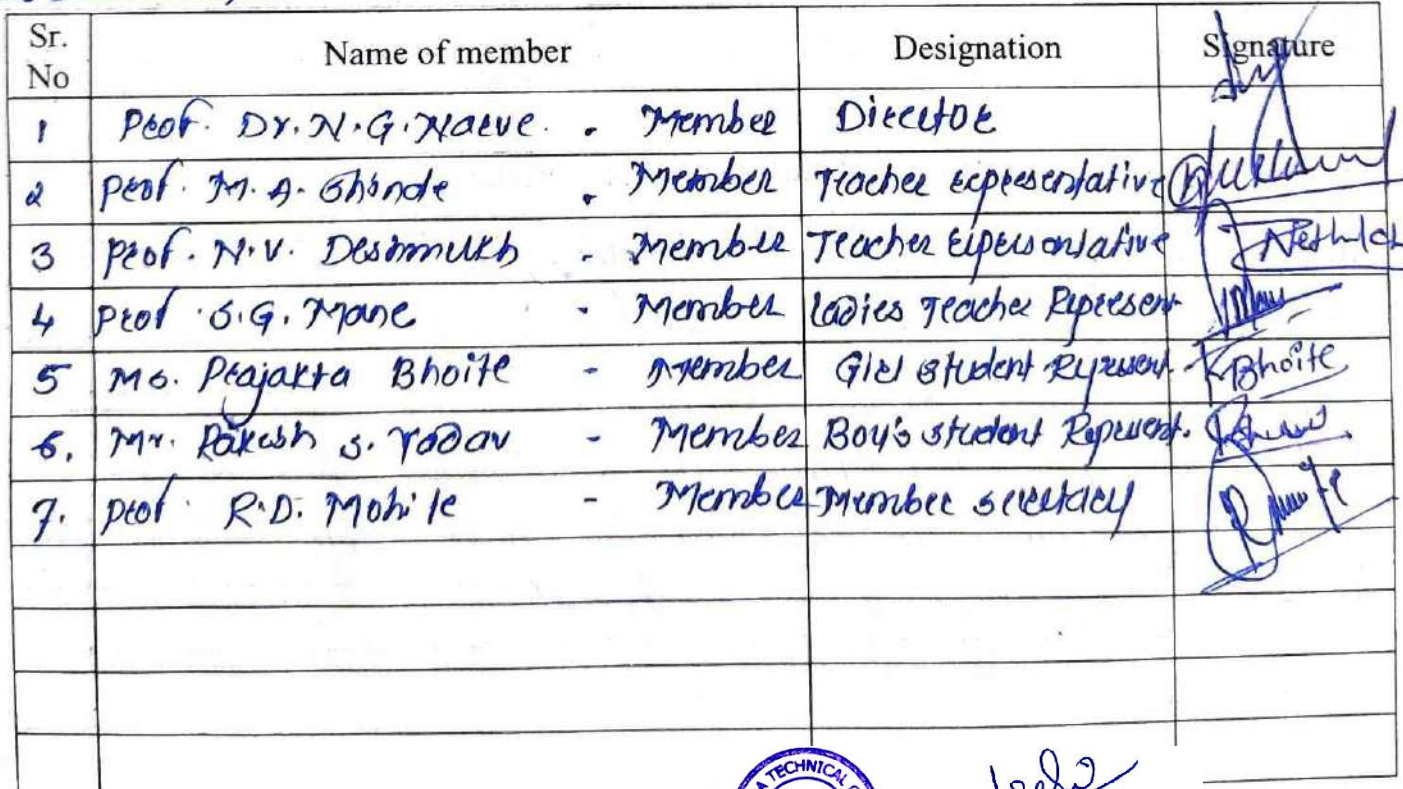 Sr. No Name of member Designation Signature
1 Prof. Dr. N. G. Narve. - Member Director
2 Prof. M. A. Shinde - Member Teacher representative
3 Prof. N. V. Deshmukh - Member Teacher representative
4 Prof. S. G. Mane - Member Ladies Teacher Represent
5 Ms. Prajakta Bhoite - Member Girl Student Represent. Bhoite
6. Mr. Rakesh S. Yadav - Member Boy's student Represent.
7. Prof. R. D. Mohite - Member Member secretary
TECHNICAL